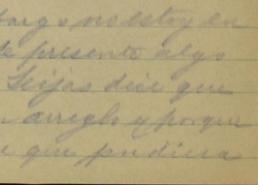 bargo no estoy en
te presente algo
Seijas dice que
arreglo y porque
que pudiera